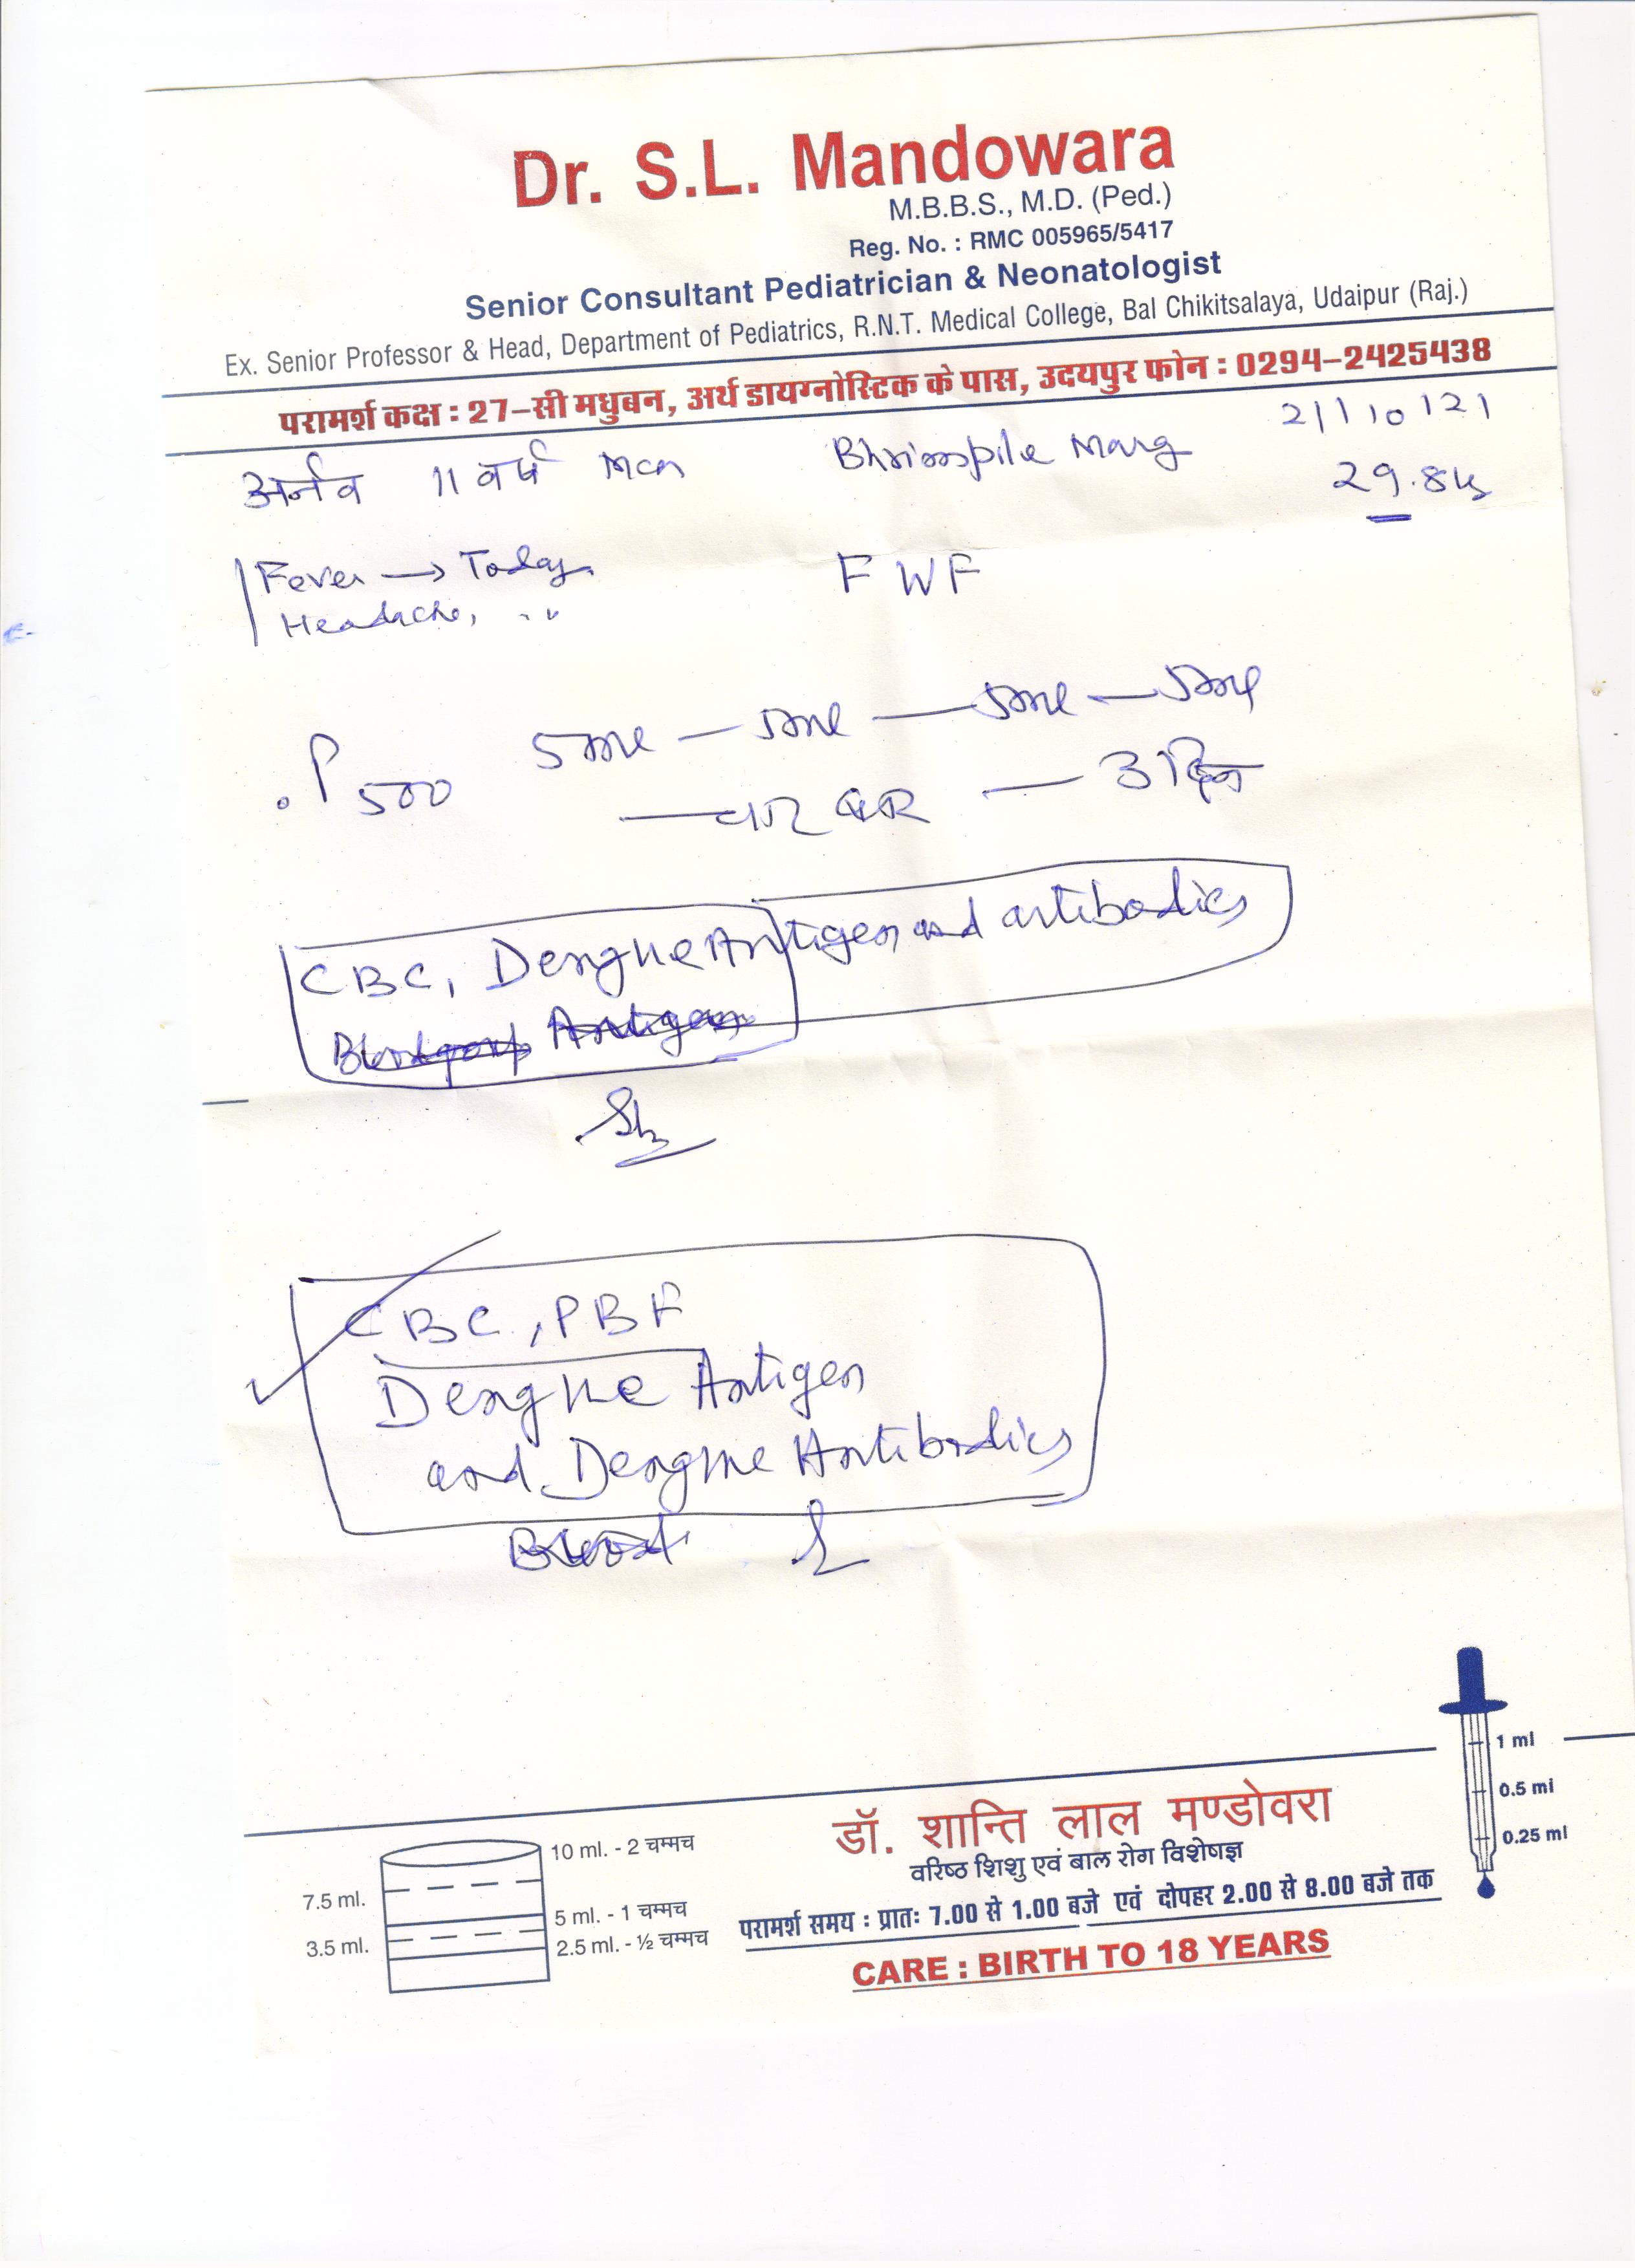 Dr. S.L. Mandowara
M.B.B.S., M.D. (Ped.)
Reg. No. : RMC 005965/5417
Senior Consultant Pediatrician & Neonatologist
Ex. Senior Professor & Head, Department of Pediatrics, R.N.T. Medical College, Bal Chikitsalaya, Udaipur (Raj.)
परामर्श कक्ष : 27-सी मधुबन, अर्थ डायग्नोस्टिक के पास, उदयपुर फोन : 0294-2425438
21/10/21
अर्नव 11 वर्ष Marg
29.8
Fever → Today
Headache, "
F W F
5ml — 5ml — 5ml — 5ml
P 500
— चार बार — 3 दिन
CBC, Dengue Antigen and antibodies
Antigen
CBC, PBF
Dengue Antigen
and Dengue Antibodies
Blood
1 ml
0.5 ml
0.25 ml
10 ml. - 2 चम्मच
7.5 ml.
5 ml. - 1 चम्मच
3.5 ml.
2.5 ml. - ½ चम्मच
डॉ. शान्ति लाल मण्डोवरा
वरिष्ठ शिशु एवं बाल रोग विशेषज्ञ
परामर्श समय : प्रातः 7.00 से 1.00 बजे एवं दोपहर 2.00 से 8.00 बजे तक
CARE : BIRTH TO 18 YEARS